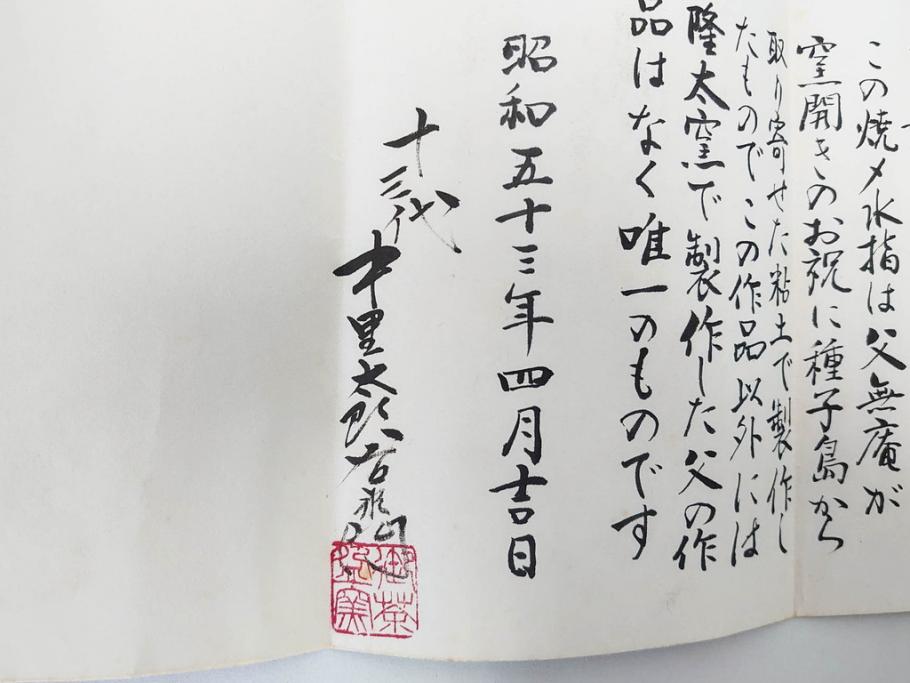 この焼〆水指は父無庵が
窯開きのお祝に種子島から
取り寄せた粘土で製作し
たものでこの作品以外には
隆太窯で製作した父の作
品はなく唯一のものです
昭和五十三年四月吉日
十三代
中里太郎右衛門
御茶
盌窯